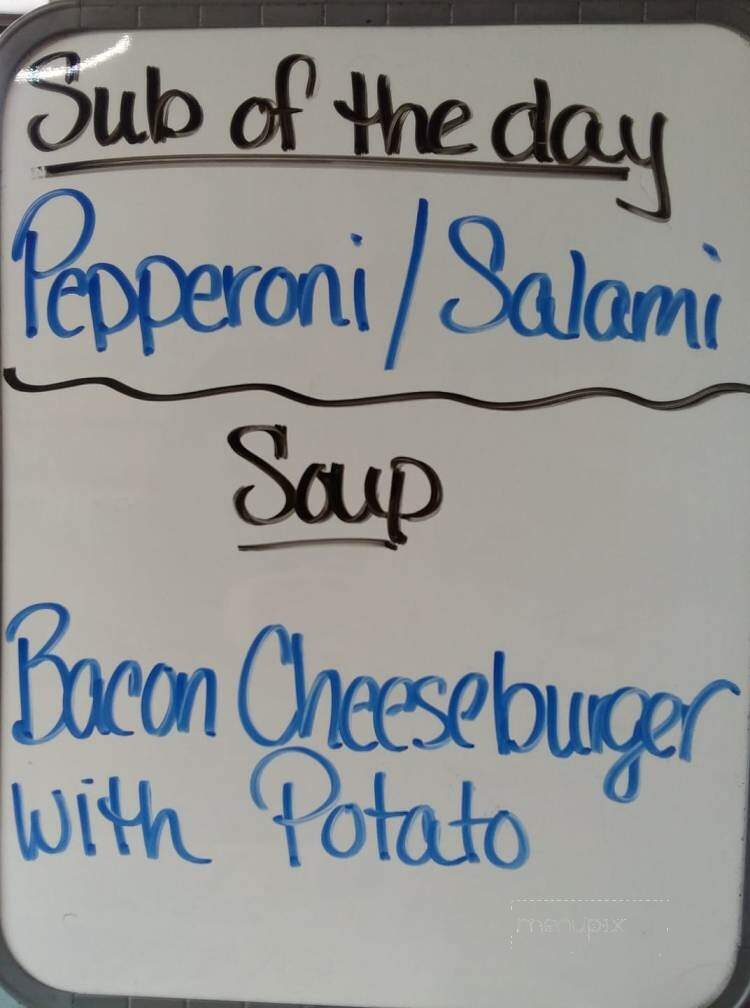 Sub of the day
Pepperoni/Salami
Soup
Bacon Cheeseburger
with Potato
menupix